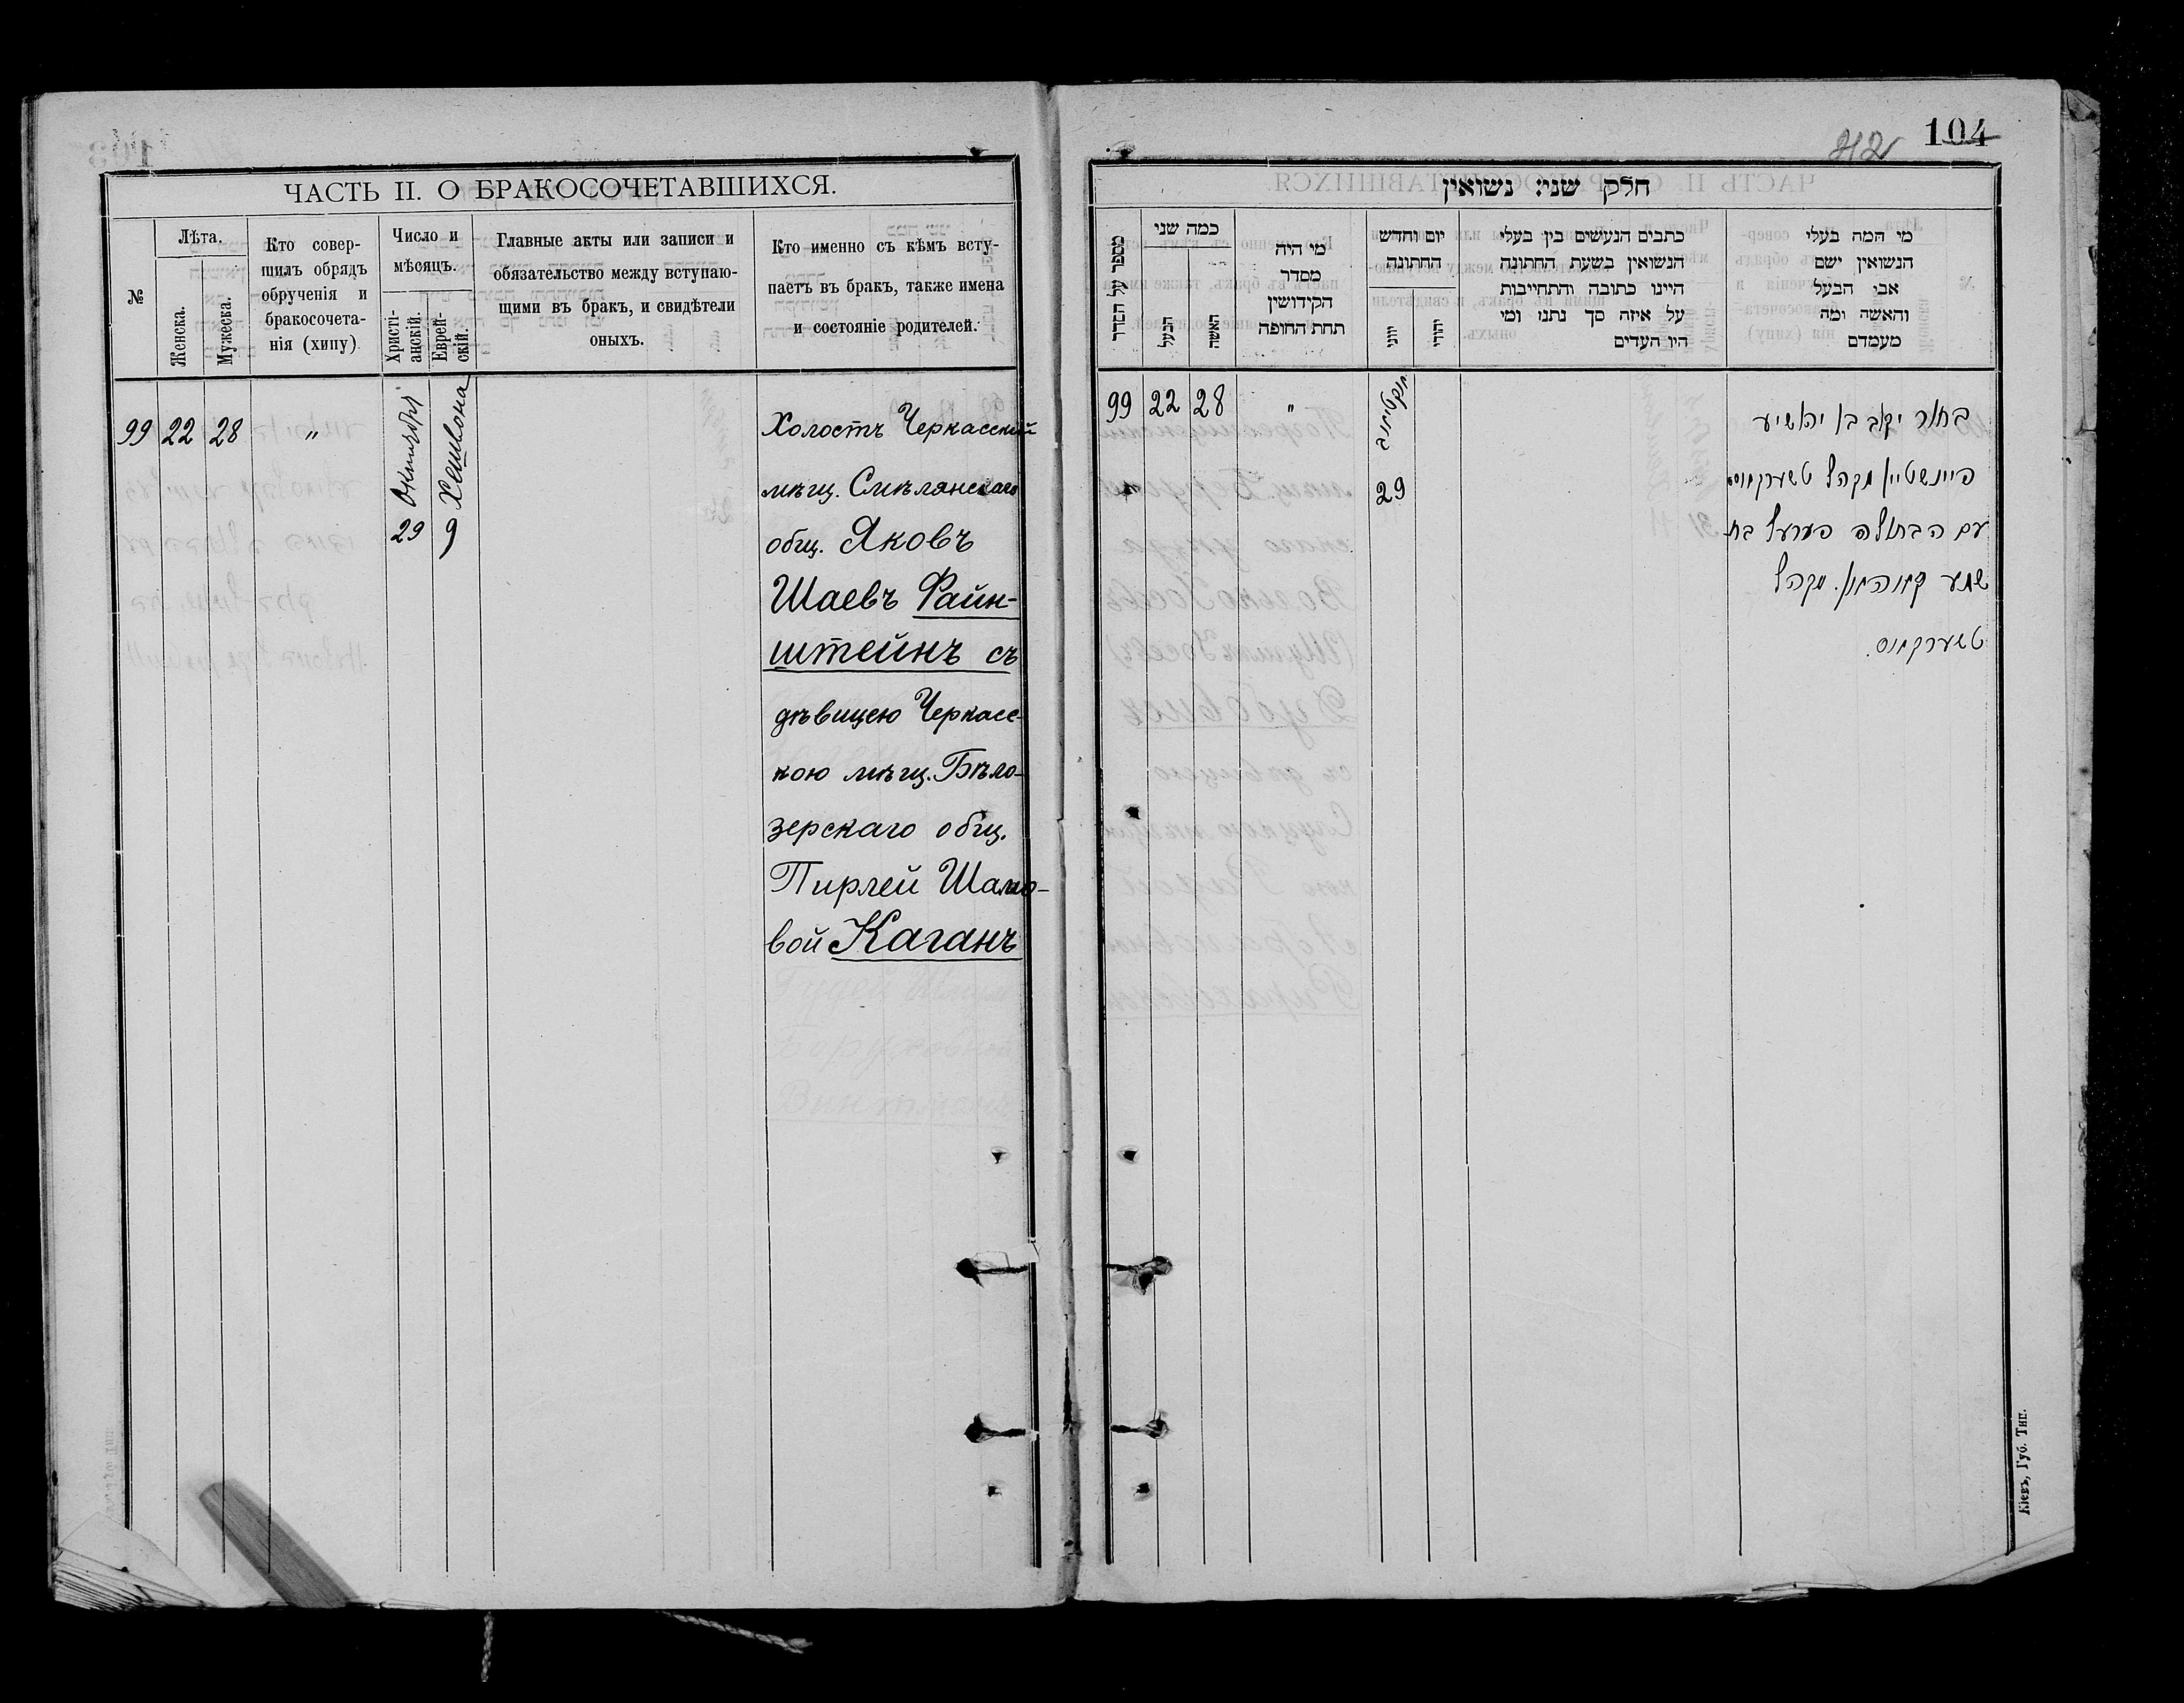 ЧАСТЬ II. О БРАКОСОЧЕТАВШИХСЯ.
№
Лѣта.
Женска.
Мужеска.
Кто совер-
шилъ обрядъ
обрученія и
бракосочета-
нія (хипу).
Число и
мѣсяцъ.
Христі-
анскій.
Еврей-
скій.
Главные акты или записи и
обязательство между вступаю-
щими въ бракъ, и свидѣтели
оныхъ.
Кто именно съ кѣмъ всту-
паетъ въ бракъ, также имена
и состояніе родителей.
99 22 28 "
Октября
29
Хешвона
9
Холостъ Черкасскій
мѣщ. Смѣлянскаго
общ. Яковъ
Шаевъ Файн-
штейнъ съ
дѣвицею Черкасс-
кою мѣщ. Бѣло-
зерскаго общ.
Пирлей Шамо-
вой Каганъ
104
212
חלק שני: נשואין
מספר על הסדר
כמה שני
הבעל
האשה
מי היה
מסדר
הקידושין
תחת החופה
יום וחדש
החתונה
יוני
יהודי
כתבים הנעשים בין בעלי
הנשואין בשעת החתונה
היינו כתובה והתחייבות
על איזה סך נתנו ומי
היו העדים
מי המה בעלי
הנשואין ושם
אבי הבעל
והאשה ומה
מעמדם
99 22 28 "
29
בחור יעקב בן יהושיע
פיינשטיין מקהל טשערקאוס
עם הבתולה פערעל בת
שמע קאהאן. מקהל
טשערקאוס.
Кіевъ, Губ. Тип.